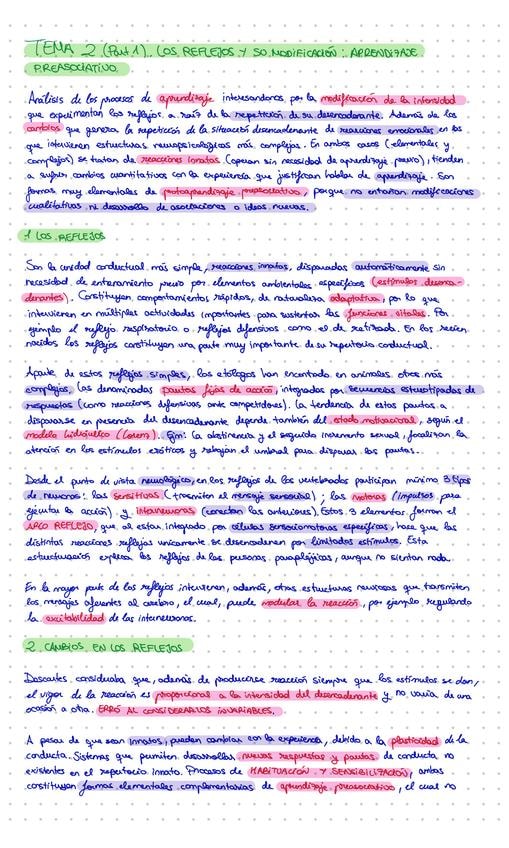 TEMA 2 (Part 1). LOS REFLEJOS Y SU MODIFICACIÓN: APRENDIZAJE
PREASOCIATIVO.
Análisis de los procesos de aprendizaje interesandonos por la modificación de la intensidad
que experimentan los reflejos a raíz de la repetición de su desencadenante. Además de los
cambios que genera la repetición de la situación desencadenante de reacciones emocionales en los
que intervienen estructuras neuropsicológicas más complejas. En ambos casos (elementales y
complejos) se tratan de reacciones innatas (operan sin necesidad de aprendizaje previo), tienden
a sufrir cambios cuantitativos con la experiencia que justifican hablar de aprendizaje. Son
formas muy elementales de protoaprendizaje preasociativo, porque no entrañan modificaciones
cualitativas ni desarrollo de asociaciones o ideas nuevas.
1 LOS REFLEJOS
Son la unidad conductual más simple, reacciones innatas, disparadas automáticamente sin
necesidad de entrenamiento previo por elementos ambientales específicos (estímulos desenca-
denantes). Constituyen comportamientos rápidos, de naturaleza adaptativa, por lo que
intervienen en múltiples actividades importantes para sustentar las funciones vitales. Por
ejemplo el reflejo respiratorio o reflejos difensivos como el de retirada. En los recien
nacidos los reflejos constituyen una parte muy importante de su repertorio conductual.
Aparte de estos reflejos simples, los etólogos han encontrado en animales otros más
complejos, las denominadas pautas fijas de acción, integradas por secuencias estereotipadas de
respuestas (como reacciones difensivas ante competidores). La tendencia de estas pautas a
dispararse en presencia del desencadenante depende también del estado motivacional, según el
modelo hidráulico (Lorenz). Ejm: La abstinencia y el seguido incremento sexual, focalizan la
atención en los estímulos eróticos y rebajan el umbral para disparar las pautas.
Desde el punto de vista neurológico, en los reflejos de los vertebrados participan mínimo 3 tipos
de neuronas: las sensitivas (trasmiten el mensaje sensorial); las motoras (impulsos para
ejecutar la acción) y interneuronas (conectan las anteriores). Estos 3 elementos forman el
ARCO REFLEJO, que al estar integrado por células sensoriomotoras específicas, hace que las
distintas reacciones reflejas unicamente se desencadenen por limitados estímulos. Esta
estructuración explica los reflejos de las personas paraplejicas, aunque no sientan nada.
En la mayor parte de los reflejos intervienen, además, otras estructuras nerviosas que transmiten
los mensajes aferentes al cerebro, el cual, puede modular la reacción, por ejemplo regulando
la excitabilidad de las interneuronas.
2. CAMBIOS EN LOS REFLEJOS
Descartes consideraba que, además de producirse reacción siempre que los estímulos se dan,
el vigor de la reacción es proporcional a la intensidad del desencadenante y no varía de una
ocasión a otra. ERRÓ AL CONSIDERARLOS INVARIABLES.
A pesar de que sean innatos, pueden cambiar con la experiencia, debido a la plasticidad de la
conducta. Sistemas que permiten desarrollar nuevas respuestas y pautas de conducta no
existentes en el repertorio innato. Procesos de HABITUACIÓN Y SENSIBILIZACIÓN, ambas
constituyen formas elementales complementarias de aprendizaje preasociativo, el cual no